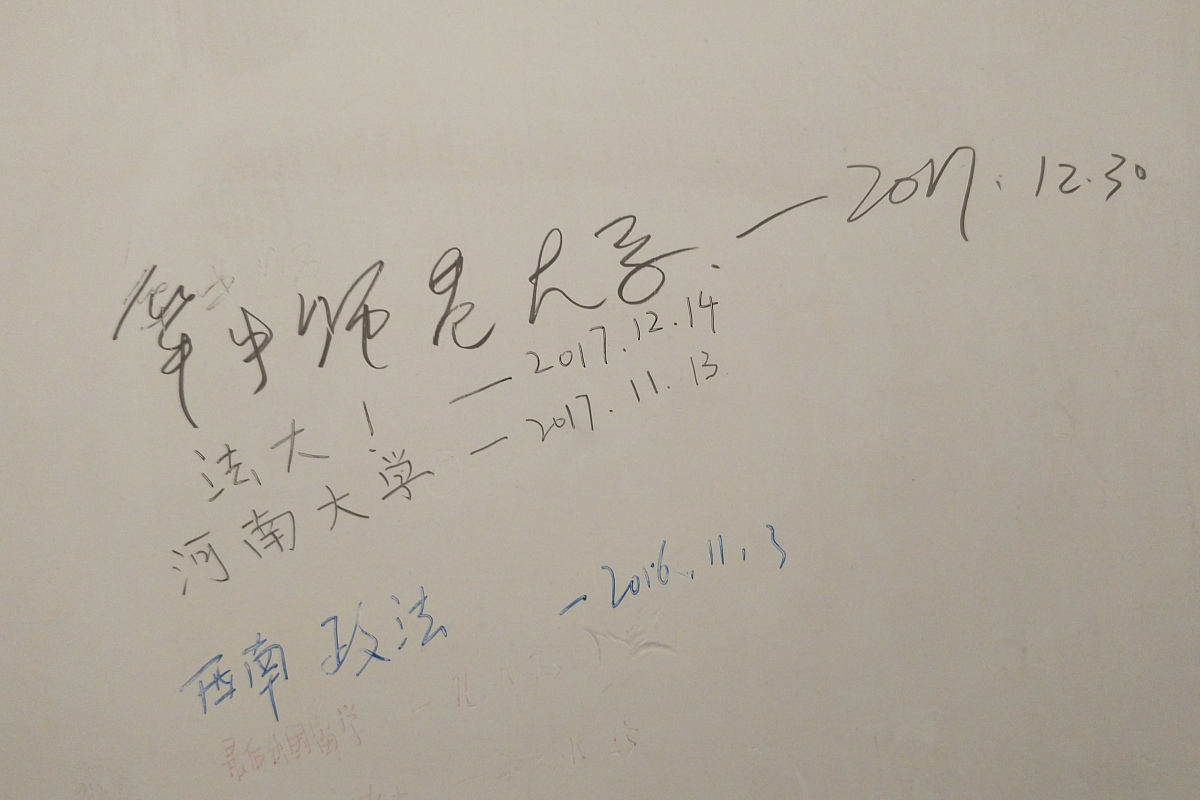 华中师范大学. — 2017. 12.30
法大! — 2017.12.14
河南大学 — 2017.11.13
西南政法 — 2016.11.3
最后出国留学